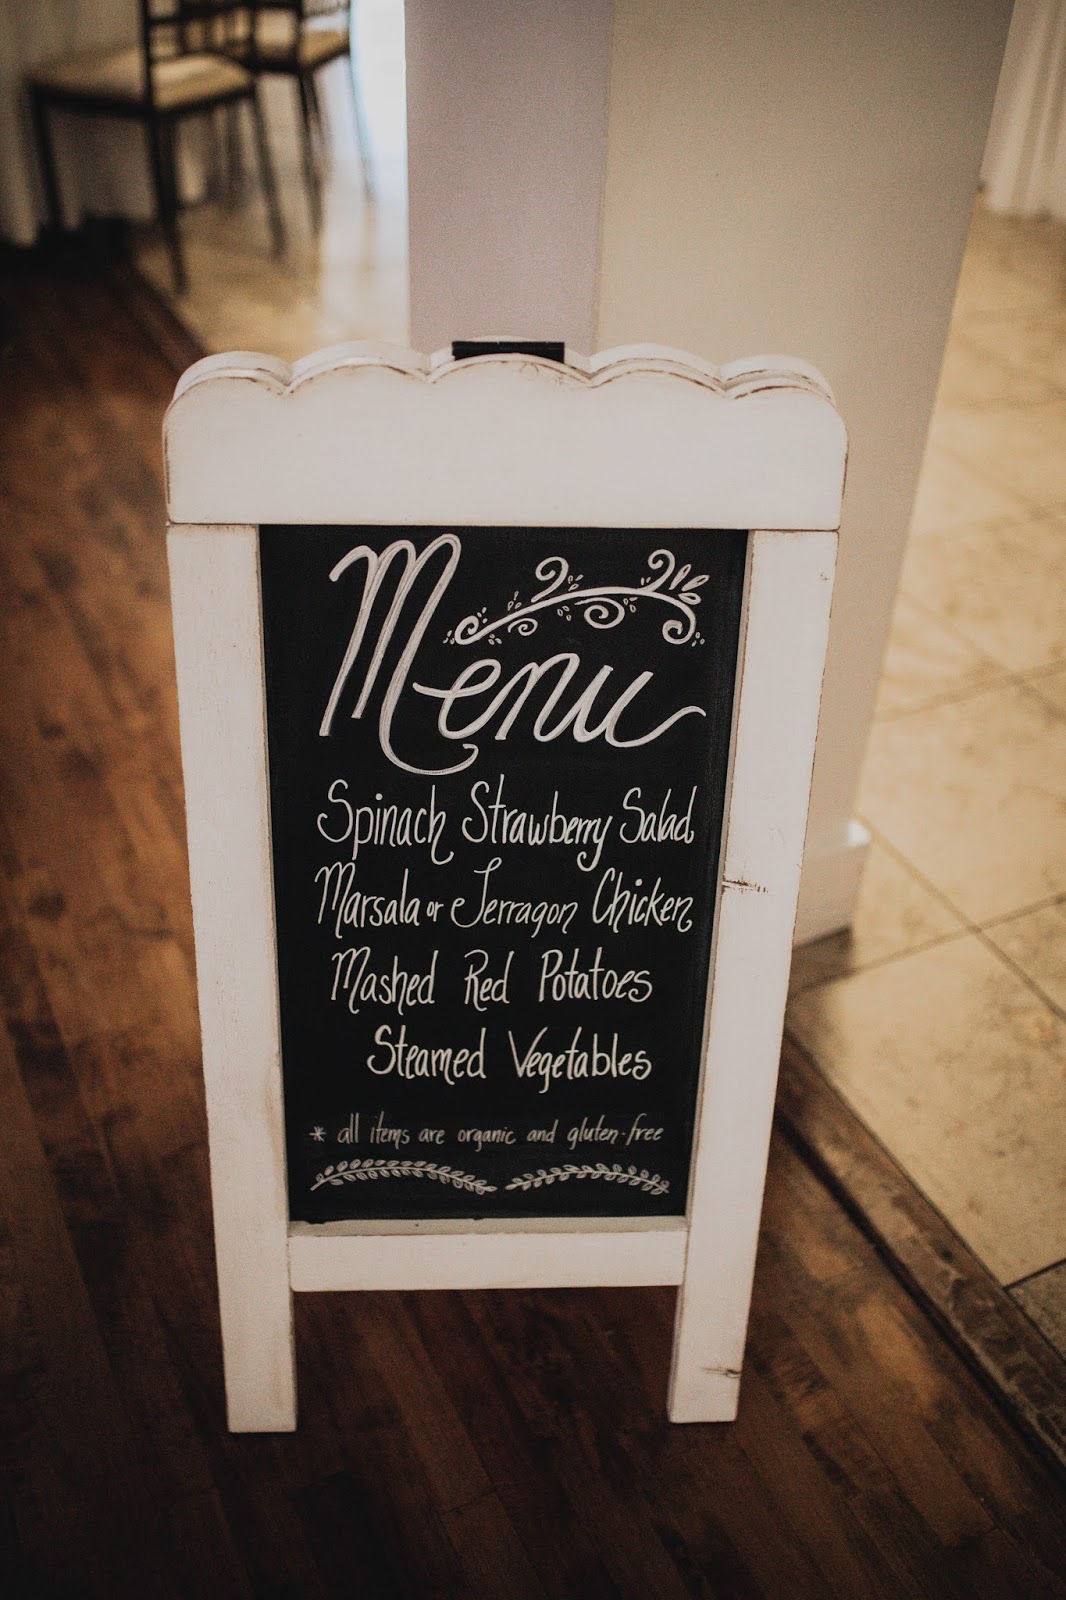 Menu
Spinach Strawberry Salad
Marsala or Terragon Chicken
Mashed Red Potatoes
Steamed Vegetables
* all items are organic and gluten-free